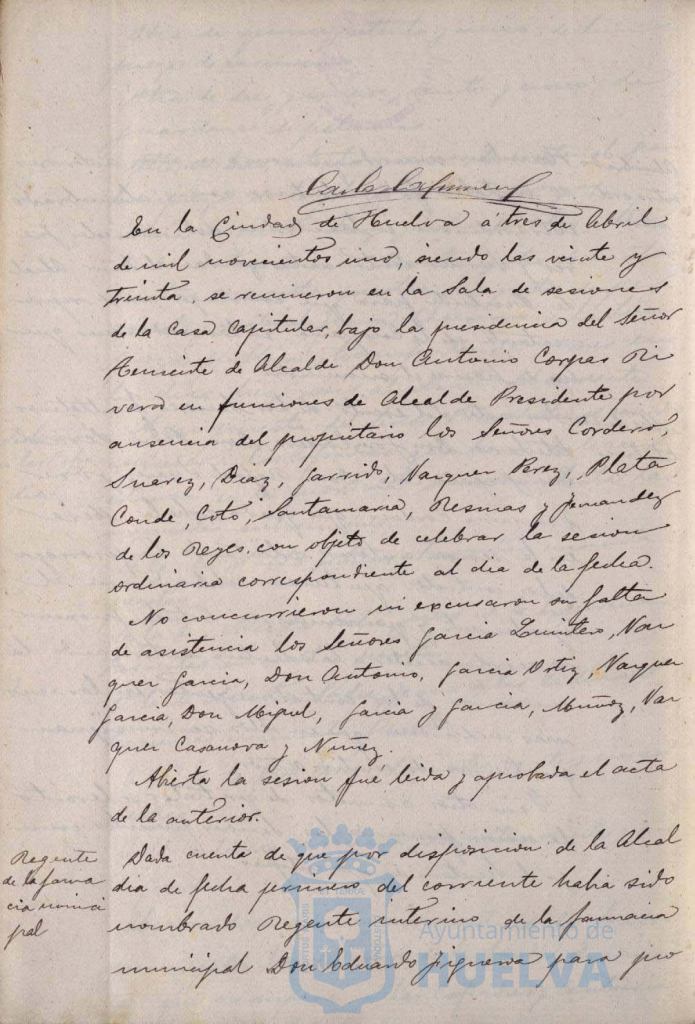 En la Ciudad de Huelva á tres de Abril
de mil novecientos uno, siendo las veinte y
treinta, se reunieron en la Sala de sesiones
de la Casa Capitular, bajo la presidencia del Señor
Teniente de Alcalde Don Antonio Corpas Ri
vero en funciones de Alcalde Presidente por
ausencia del propietario los Señores Cordero,
Suarez, Diaz, Garrido, Vazquez Perez, Plata,
Conde, Coto, Santamaria, Resinas y Fernandez
de los Reyes, con objeto de celebrar la sesion
ordinaria correspondiente al dia de la fecha.
No concurrieron ni excusaron su falta
de asistencia los Señores Garcia Quintero, Vaz
quez Garcia, Don Antonio, Garcia Ortiz, Vazquez
Garcia, Don Miguel, Garcia y Garcia, Muñoz, Vaz
quez Casanova y Nuñez.
Abierta la sesion fué leida y aprobada el acta
de la anterior.
Regente
de la farma
cia munici
pal
Dada cuenta de que por disposicion de la Alcal
dia de fecha primero del corriente habia sido
nombrado Regente interino de la farmacia
municipal Don Eduardo Figueroa para pro
Ayuntamiento de
HUELVA